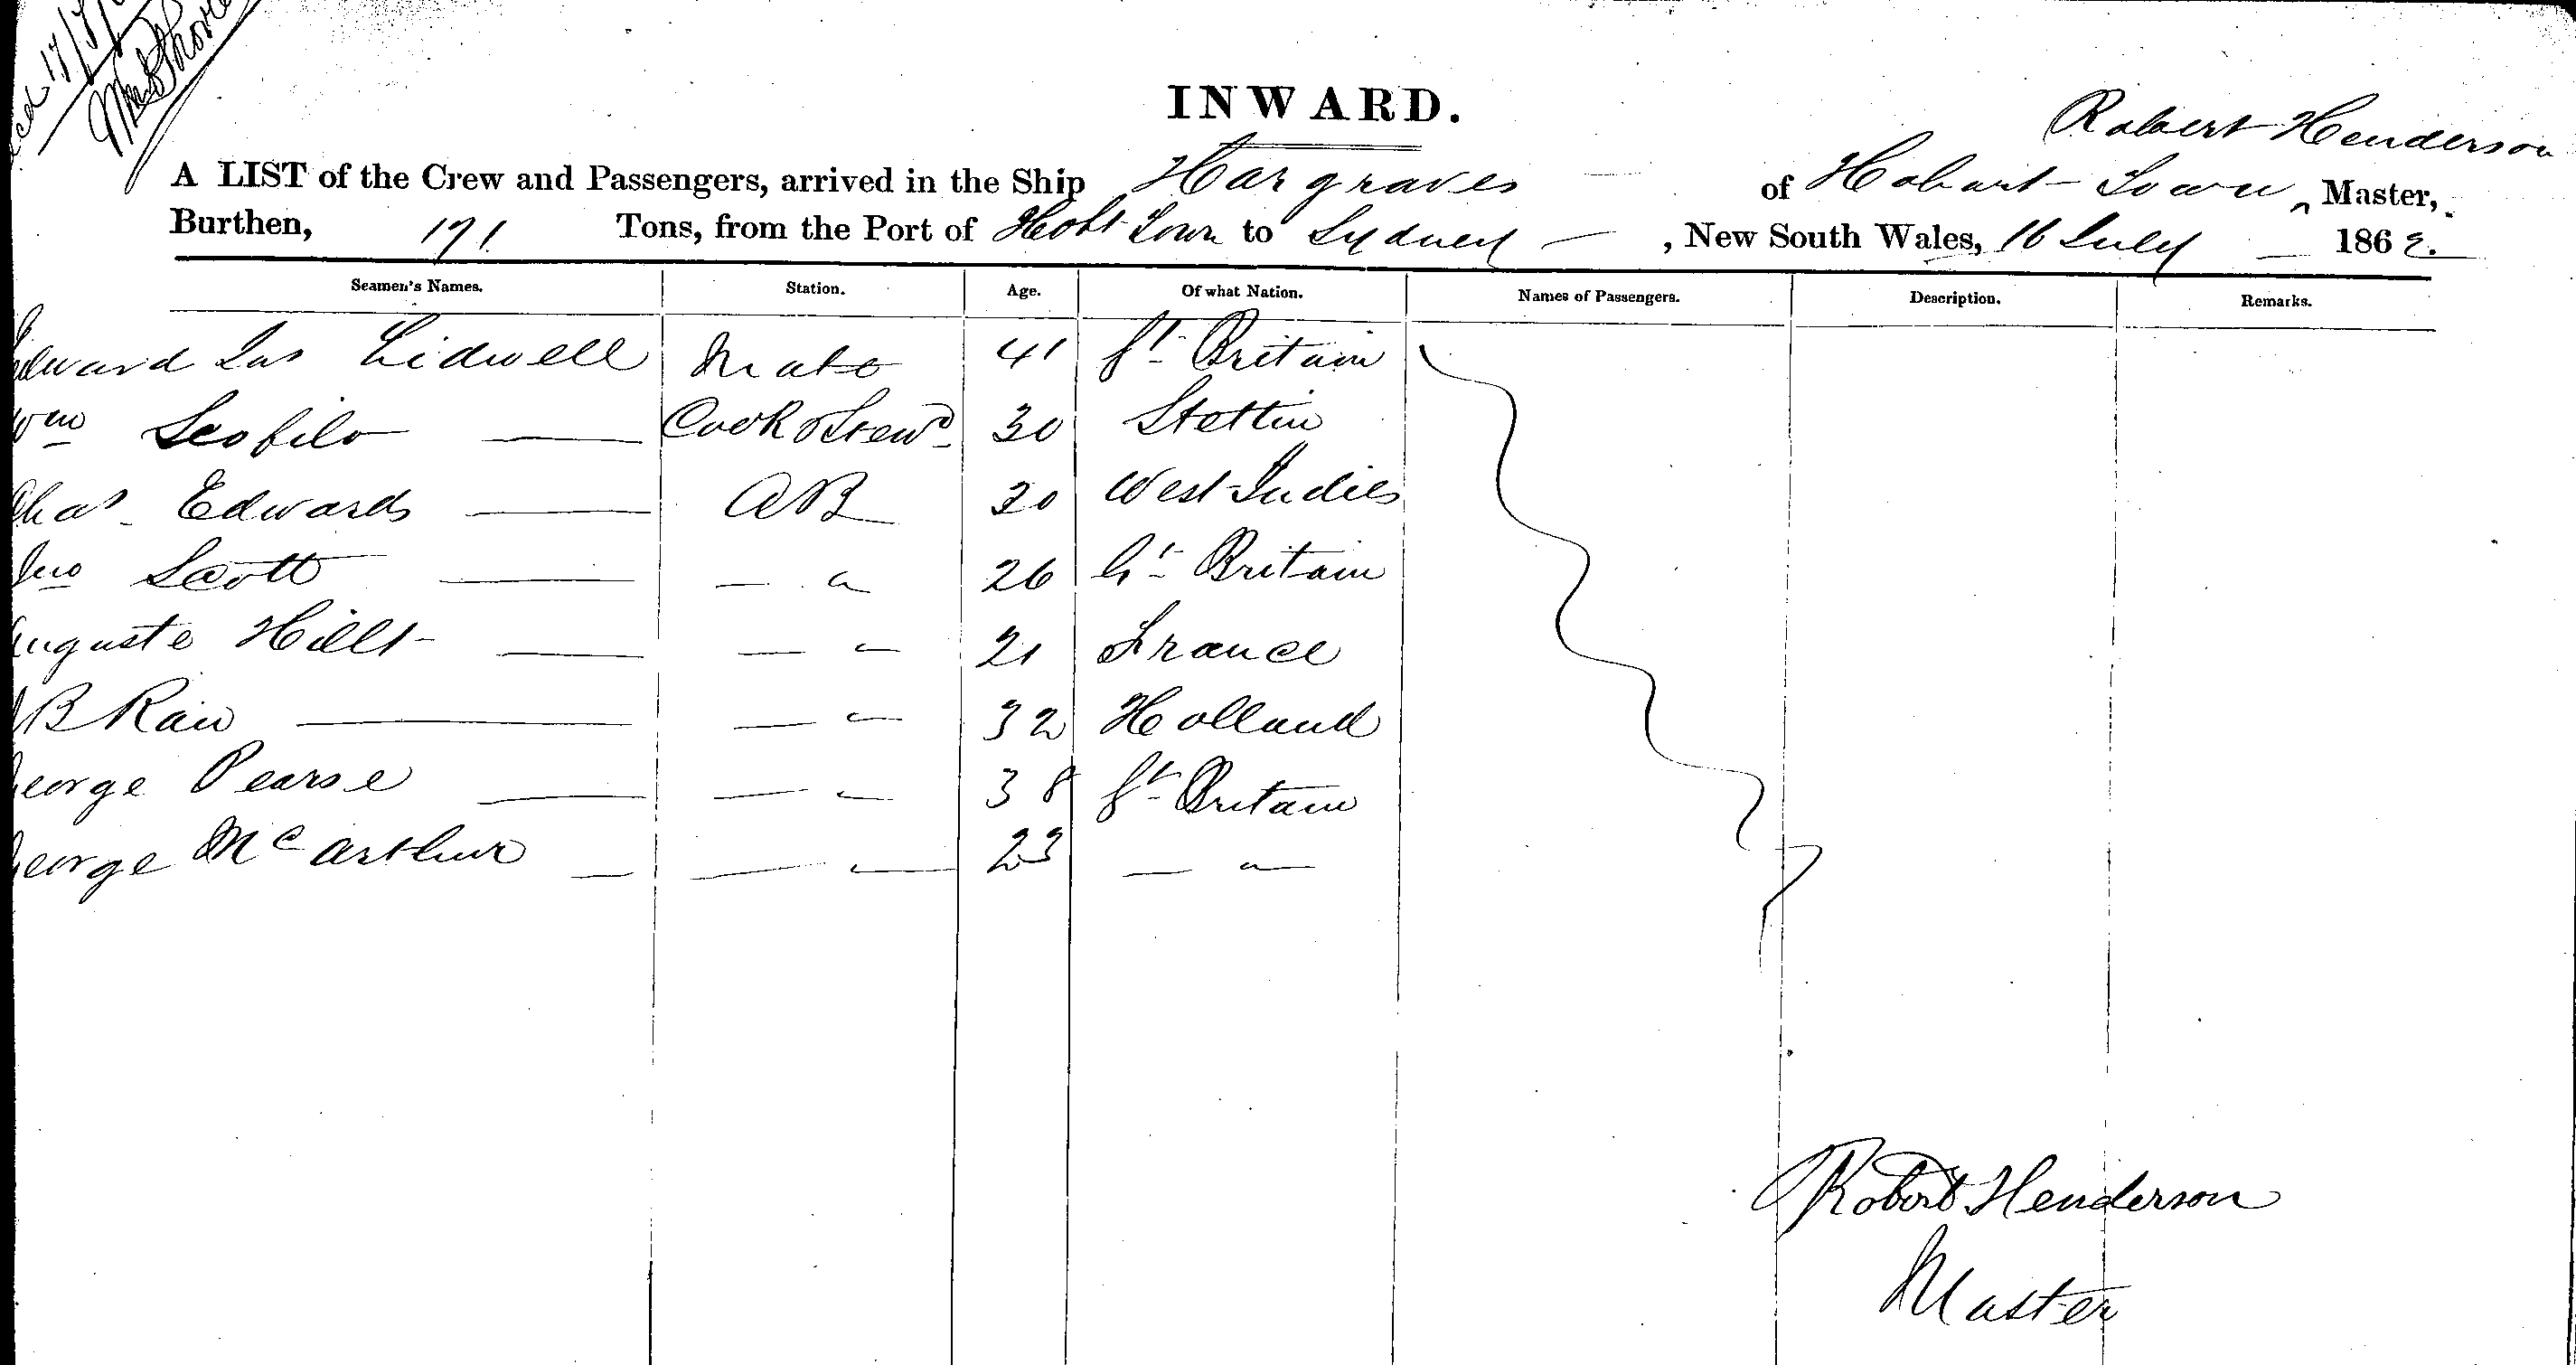 17/7/
INWARD.
Robert Henderson
A LIST of the Crew and Passengers, arrived in the Ship Hargraves of Hobart Town ‸ Master,
Burthen, 171 Tons, from the Port of Hobt Town to Sydney —, New South Wales, 16 July — 1862.
Seamen's Names. Station. Age. Of what Nation. Names of Passengers. Description. Remarks.
Edward Jas Lidwell Mate 41 Gt Britain
Wm — Cook & Stewd 30 Stettin
Chas Edwards — AB 20 West Indies
Jno Scott — — " 26 Gt Britain
Auguste Hillt — — " 21 France
B — — " 32 Holland
George Pearse — — " 38 Gt Britain
George McArthur — — " 23 — "
Robert Henderson
Master